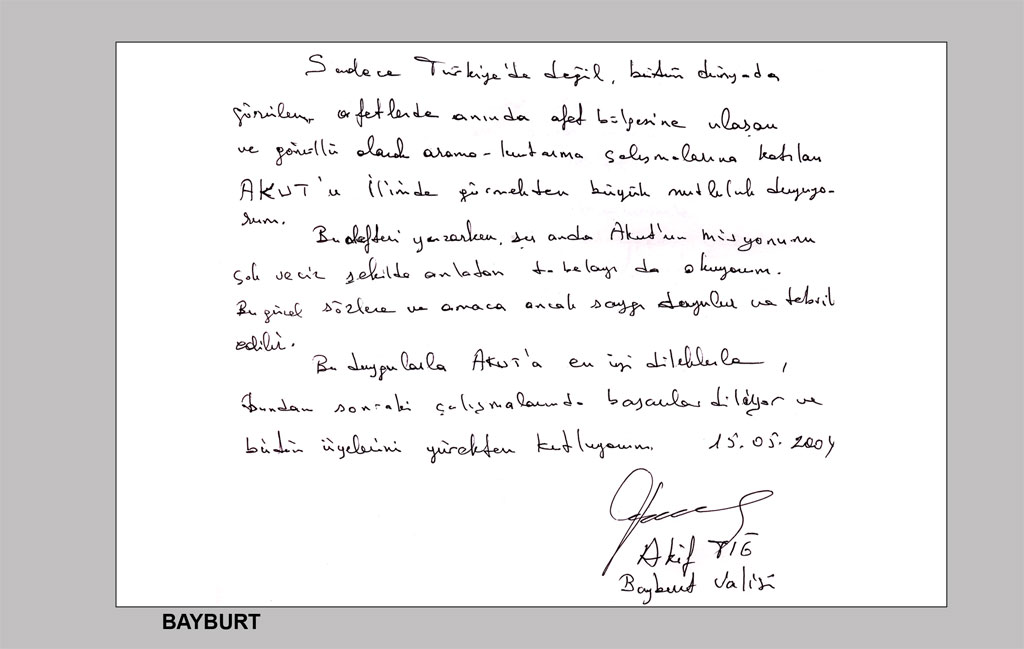 Sadece Türkiye'de değil, bütün dünyada
görülen afetlerde anında afet bölgesine ulaşan
ve gönüllü olarak arama-kurtarma çalışmalarına katılan
AKUT'u İlimde görmekten büyük mutluluk duyuyo-
rum.
Bu defteri yazarken, şu anda Akut'un misyonunu
çok veciz şekilde anlatan tabelayı da okuyorum.
Bu güzel sözlere ve amaca ancak saygı duyulur ve tebrik
edilir.
Bu duygularla AKUT'a en iyi dileklerle,
bundan sonraki çalışmalarında başarılar diliyor ve
bütün üyelerini yürekten kutluyorum. 15.05.2004
Akif TIĞ
Bayburt Valisi
BAYBURT